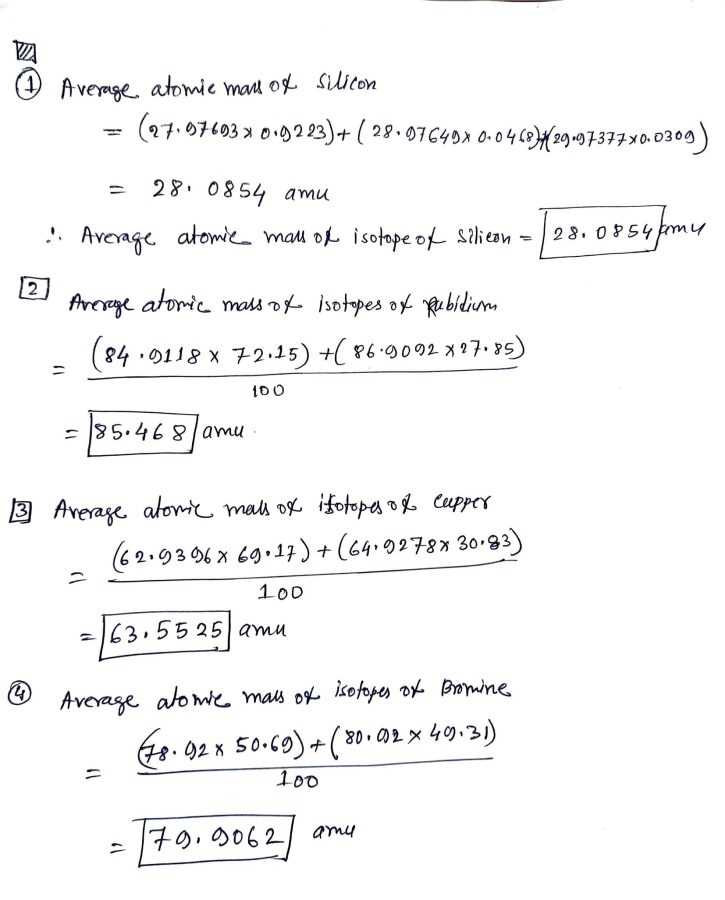 ① Average atomic mass of silicon
= (27.97693 x 0.9223) + (28.97649 x 0.0468) + (29.97377 x 0.0309)
= 28.0854 amu
∴ Average atomic mass of isotope of Silicon = 28.0854 amu
2 Average atomic mass of isotopes of Rubidium
= (84.9118 x 72.15) + (86.9092 x 27.85)
100
= 85.468 amu
3 Average atomic mass of isotopes of cupper
= (62.9396 x 69.17) + (64.9278 x 30.83)
100
= 63.5525 amu
④ Average atomic mass of isotopes of Bromine
= (78.92 x 50.69) + (80.92 x 49.31)
100
= 79.9062 amu